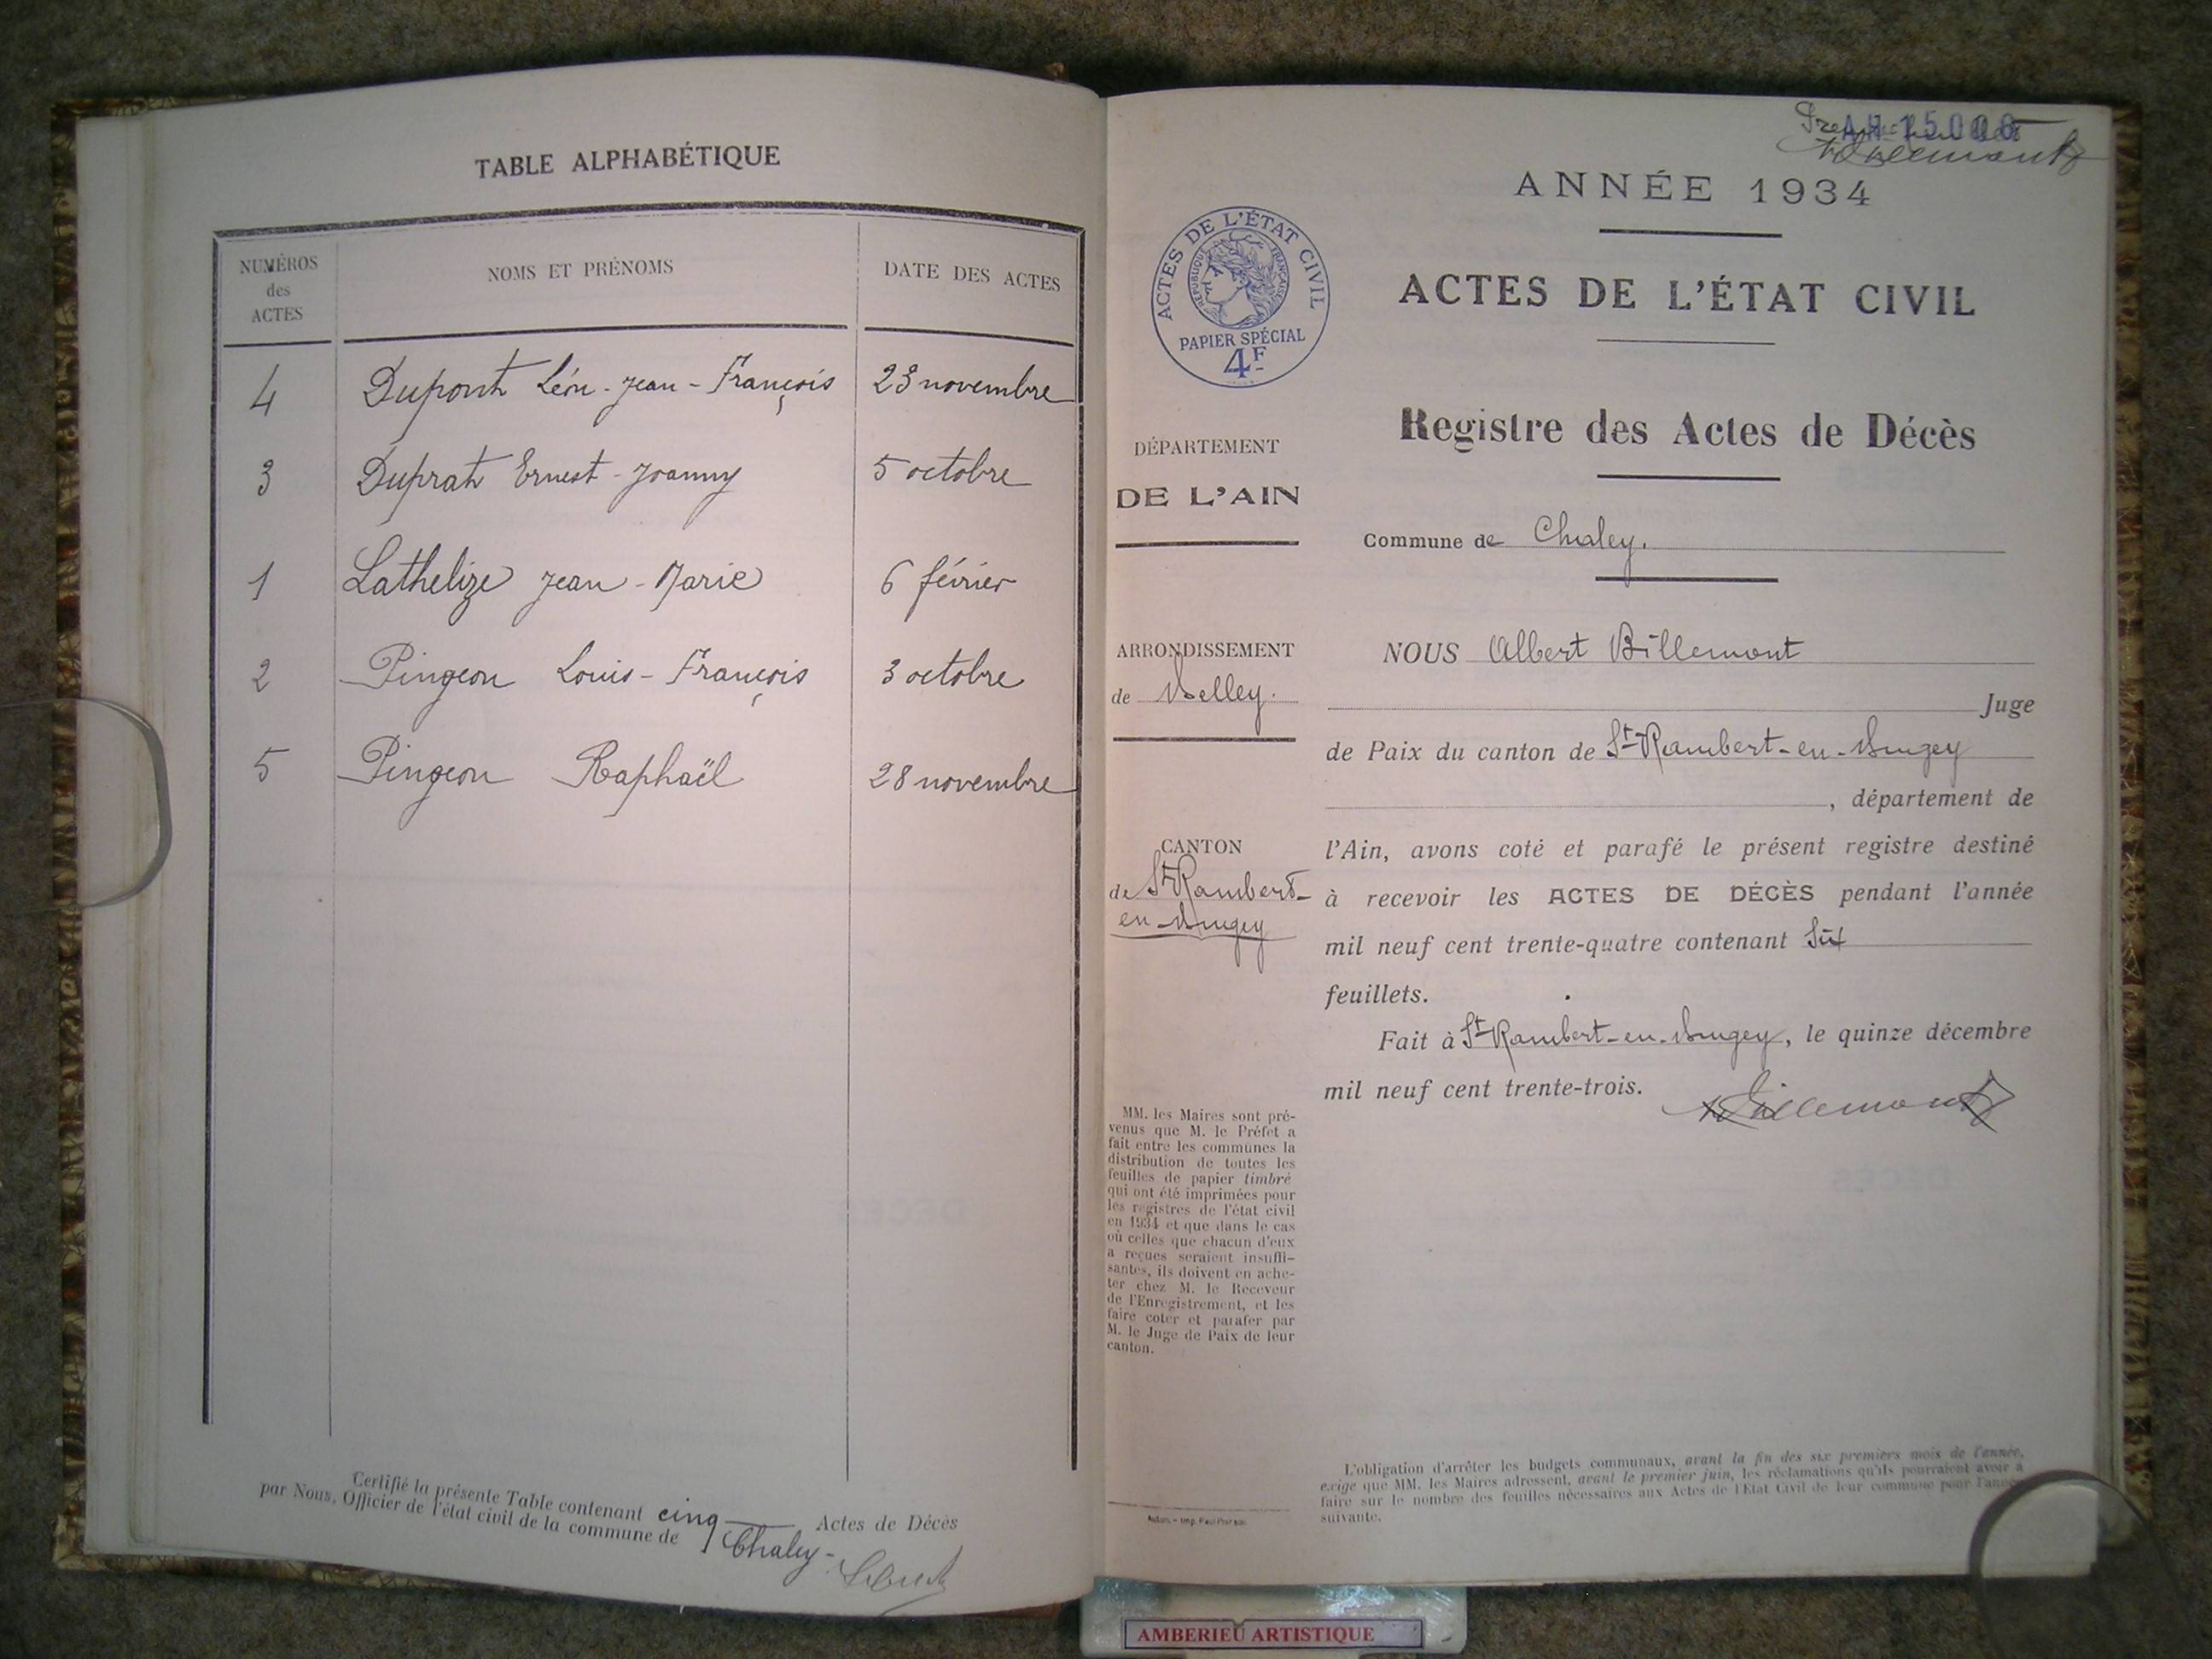 TABLE ALPHABÉTIQUE
NUMÉROS
des
ACTES
NOMS ET PRÉNOMS
DATE DES ACTES
4 Dupont Léon-Jean-François 23 novembre
3 Duprat Ernest-Joanny 5 octobre
1 Lathelize Jean-Marie 6 février
2 Pingeon Louis-François 3 octobre
5 Pingeon Raphaël 28 novembre
Certifié la présente Table contenant cinq Actes de Décès
par Nous, Officier de l'état civil de la commune de Chaley-
ANNÉE 1934
ACTES DE L'ÉTAT CIVIL
RÉPUBLIQUE FRANÇAISE
PAPIER SPÉCIAL
4F
ACTES DE L'ÉTAT CIVIL
Registre des Actes de Décès
Commune de Chaley.
DÉPARTEMENT
DE L'AIN
ARRONDISSEMENT
de Belley.
CANTON
de St Rambert-
en-Bugey
MM. les Maires sont pré-
venus que M. le Préfet a
fait entre les communes la
distribution de toutes les
feuilles de papier timbré
qui ont été imprimées pour
les registres de l'état civil
en 1934 et que dans le cas
où celles que chacun d'eux
a reçues seraient insuffi-
santes, ils doivent en ache-
ter chez M. le Receveur
de l'Enregistrement, et les
faire coter et parafer par
M. le Juge de Paix de leur
canton.
NOUS Albert Billemont
Juge
de Paix du canton de St-Rambert-en-Bugey
, département de
l'Ain, avons coté et parafé le présent registre destiné
à recevoir les ACTES DE DÉCÈS pendant l'année
mil neuf cent trente-quatre contenant Six
feuillets.
Fait à St-Rambert-en-Bugey, le quinze décembre
mil neuf cent trente-trois.
Billemont
L'obligation d'arrêter les budgets communaux, avant la fin des six premiers mois de l'année,
exige que MM. les Maires adressent, avant le premier juin, les réclamations qu'ils pourraient avoir à
faire sur le nombre des feuilles nécessaires aux Actes de l'Etat Civil de leur commune pour l'année
suivante.
AMBERIEU ARTISTIQUE